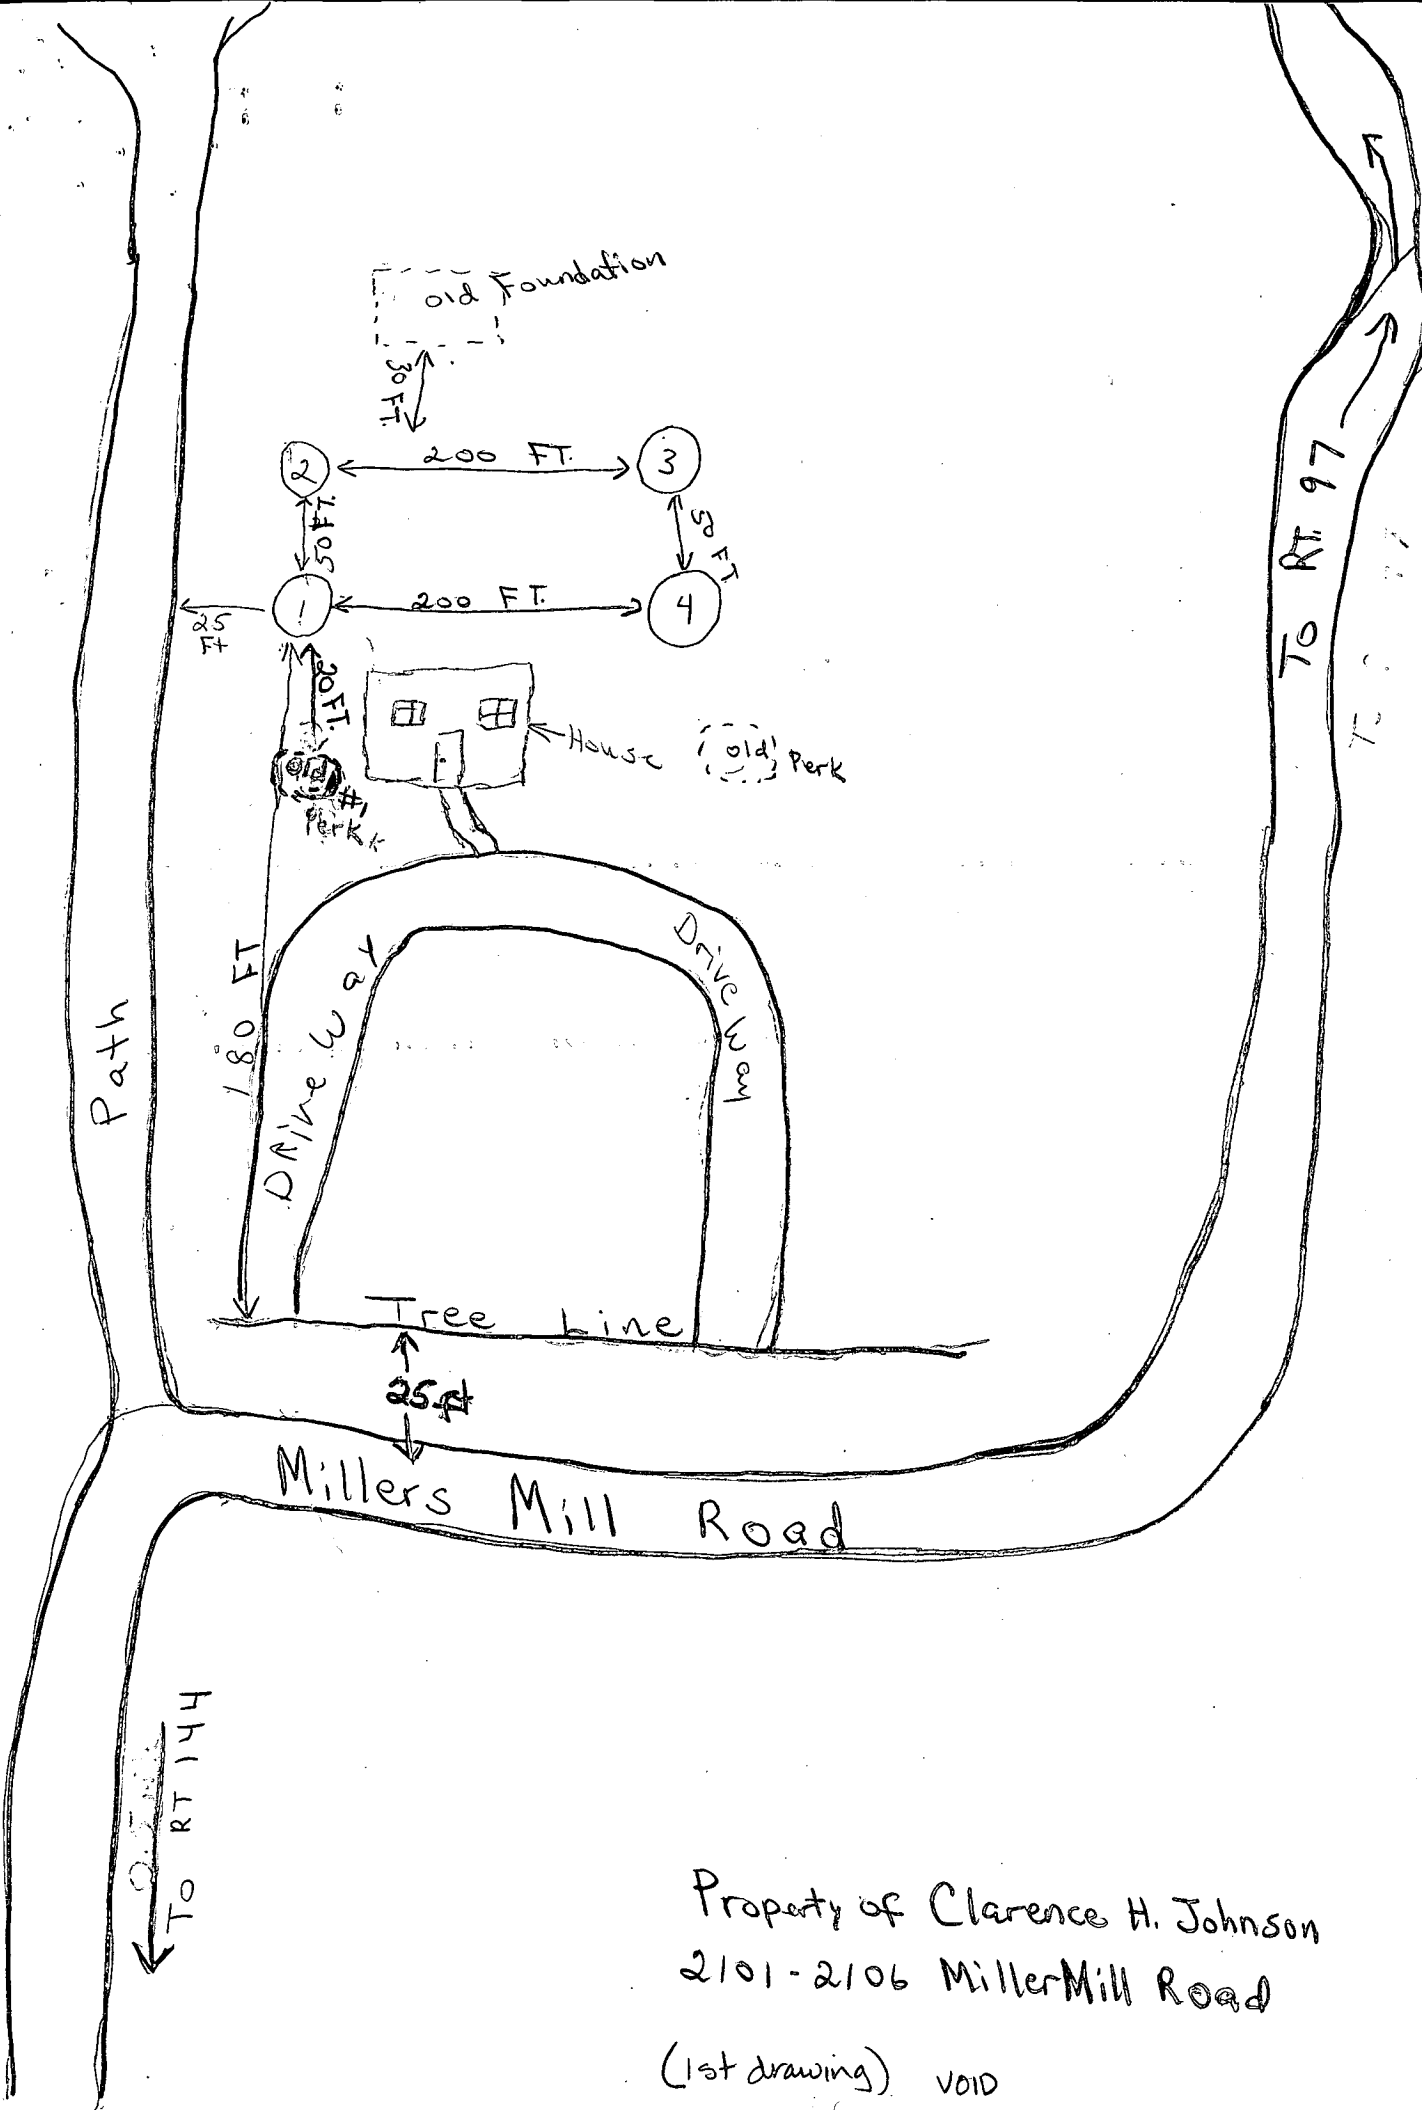 old Foundation
30 FT.
2
200 FT.
3
50 FT.
50 FT
1
200 FT.
4
25
Ft
20 FT.
House
old
Perk
old
#1
Perk
180 FT
Drive Way
Drive Way
Path
To RT. 97
Tree Line
25 ft
Millers Mill Road
To RT 144
Property of Clarence H. Johnson
2101-2106 MillerMill Road
(1st drawing) VOID